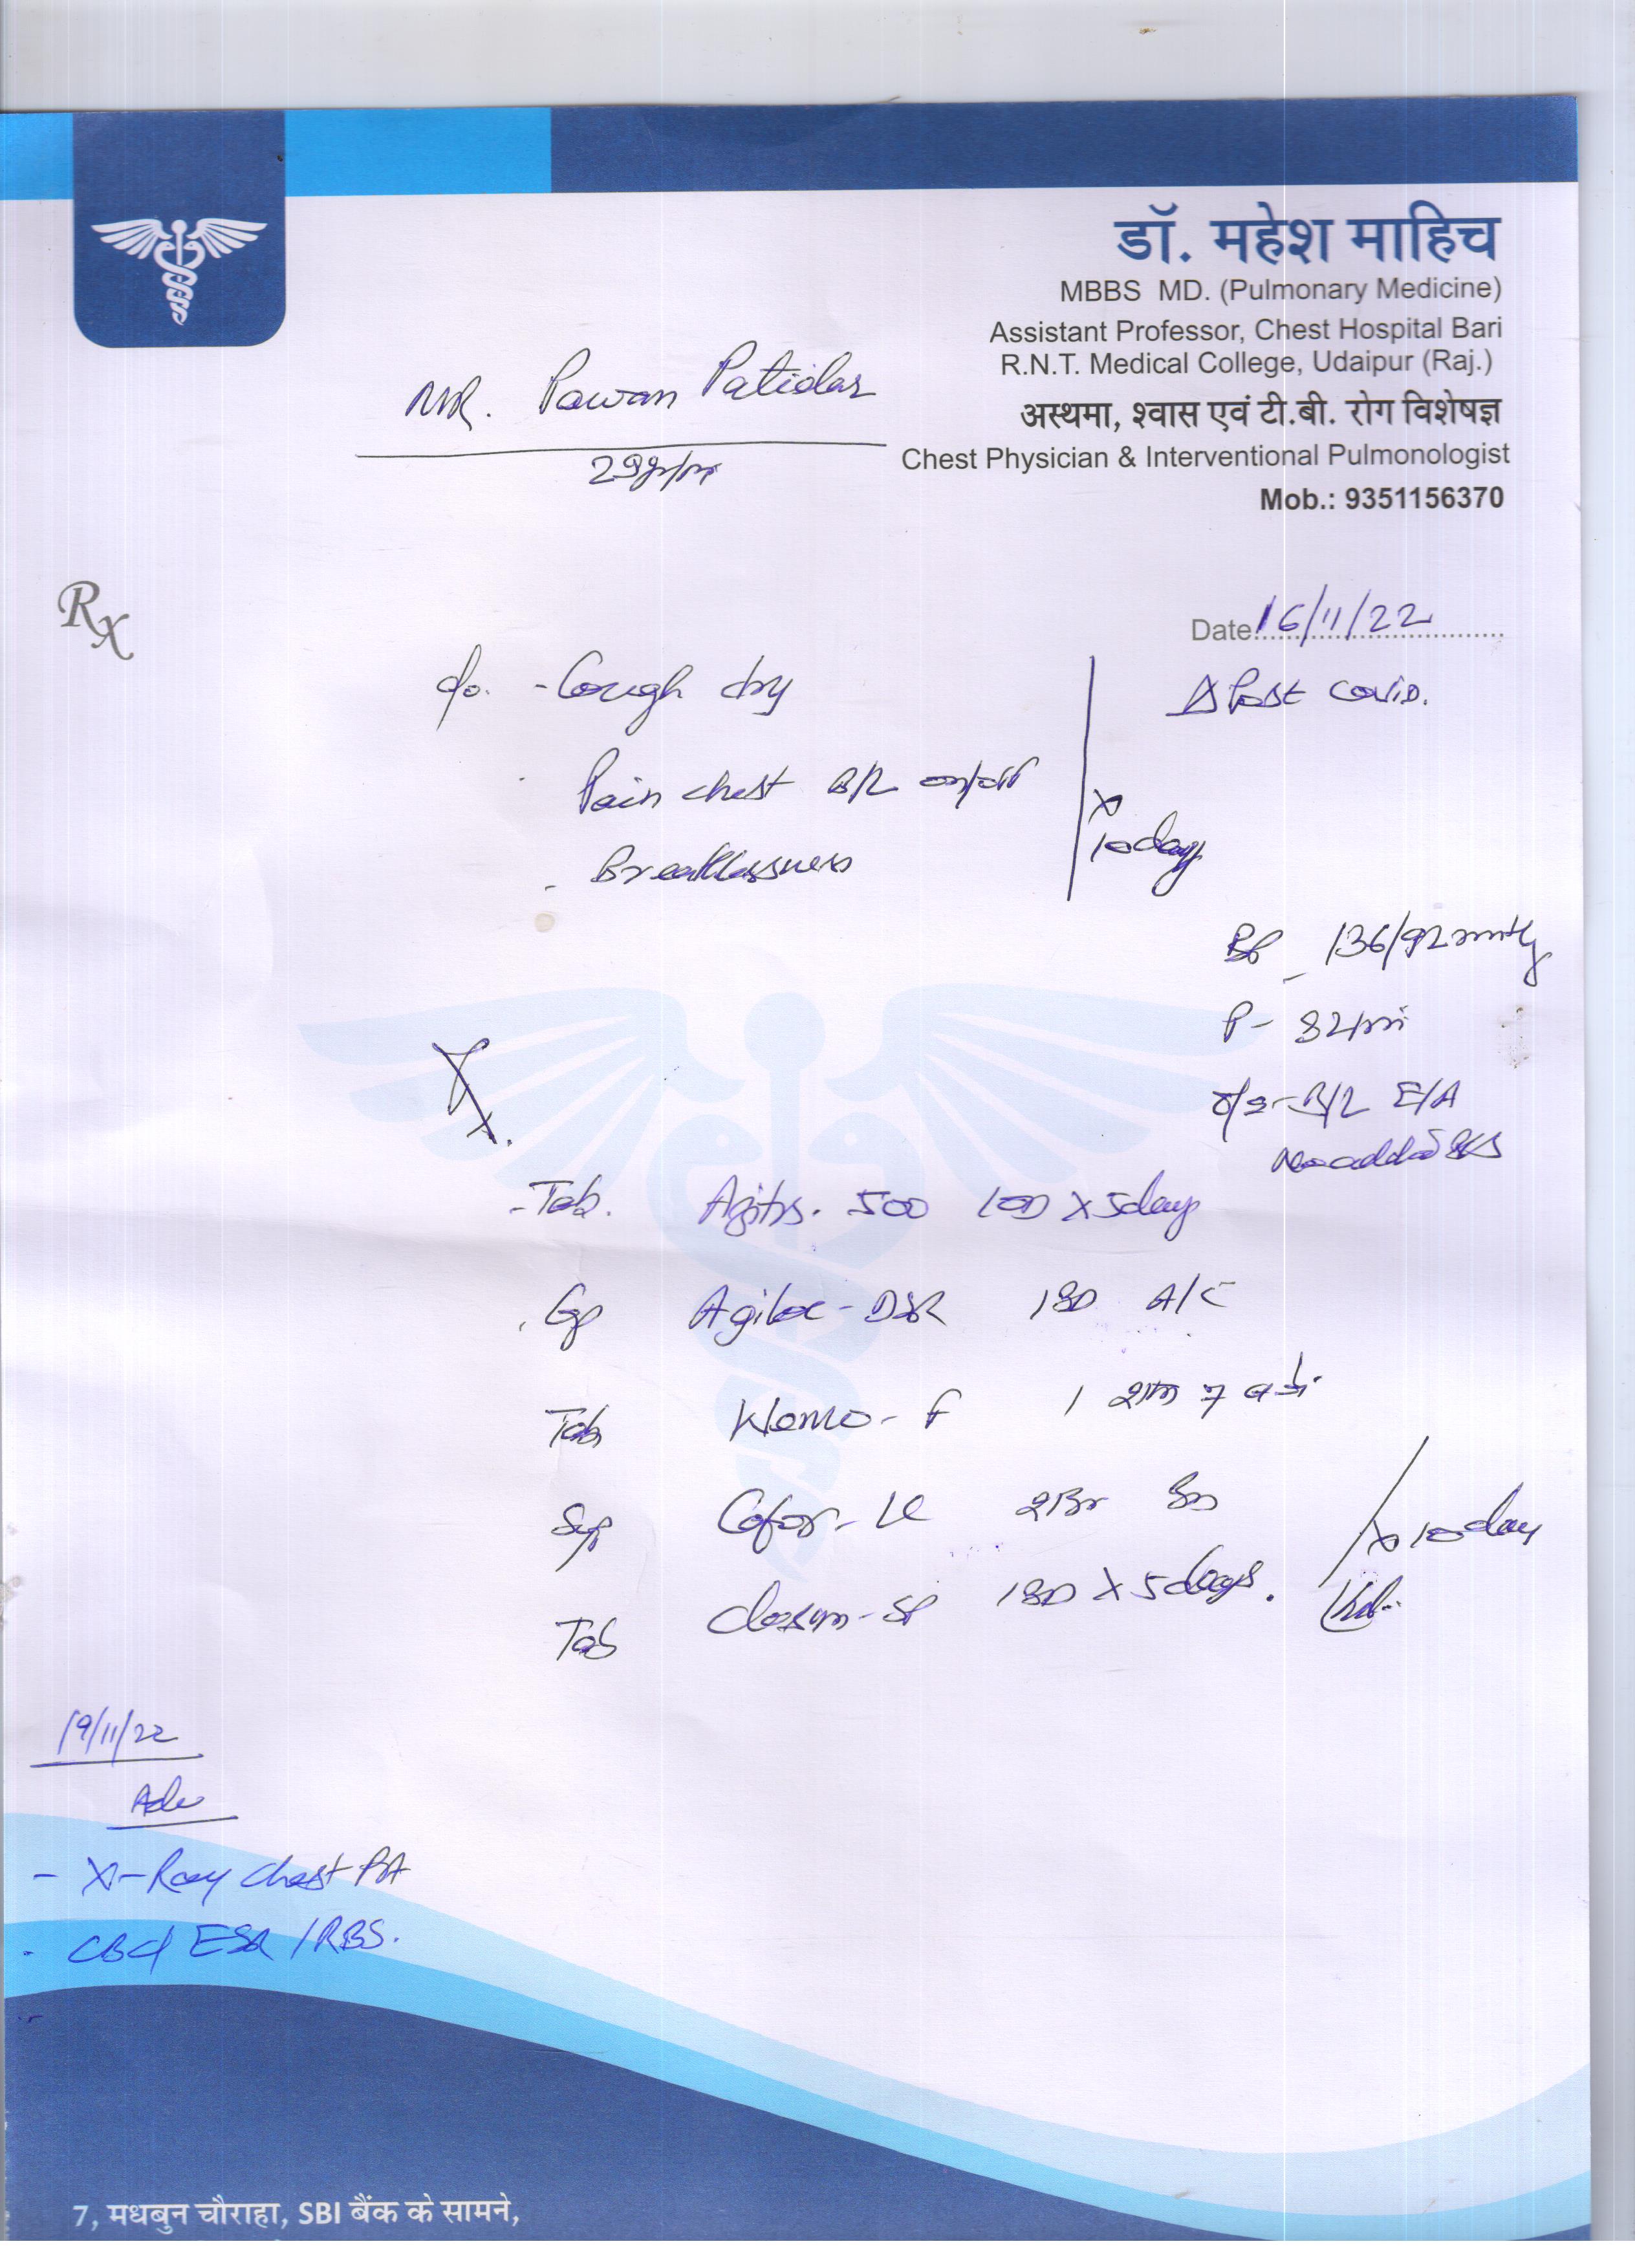 डॉ. महेश माहिच
MBBS MD. (Pulmonary Medicine)
Assistant Professor, Chest Hospital Bari
R.N.T. Medical College, Udaipur (Raj.)
अस्थमा, श्वास एवं टी.बी. रोग विशेषज्ञ
Chest Physician & Interventional Pulmonologist
Mob.: 9351156370
MR. Pawan Patidar
29yr/m
Rx
Date 16/11/22
c/o. - Cough dry
Δ Post Covid.
Pain chest B/L on/off
x 10 days
- Breathlessness
BP - 136/92 mmHg
P - 82/mi
R/S - B/L E/A
No added
Rx.
- Tab. Azitrs. 500 1OD x 5days
. Cap Agiloc-DSR 1BD A/C
Tab - F 1 शाम 7 बजे.
Syp Cofor-LC
x 10 day
Tab -SP 1BD x 5days.
19/11/22
Adv
- X-Ray Chest PA
- CBC/ ESR /RBS.
7, मधबुन चौराहा, SBI बैंक के सामने,